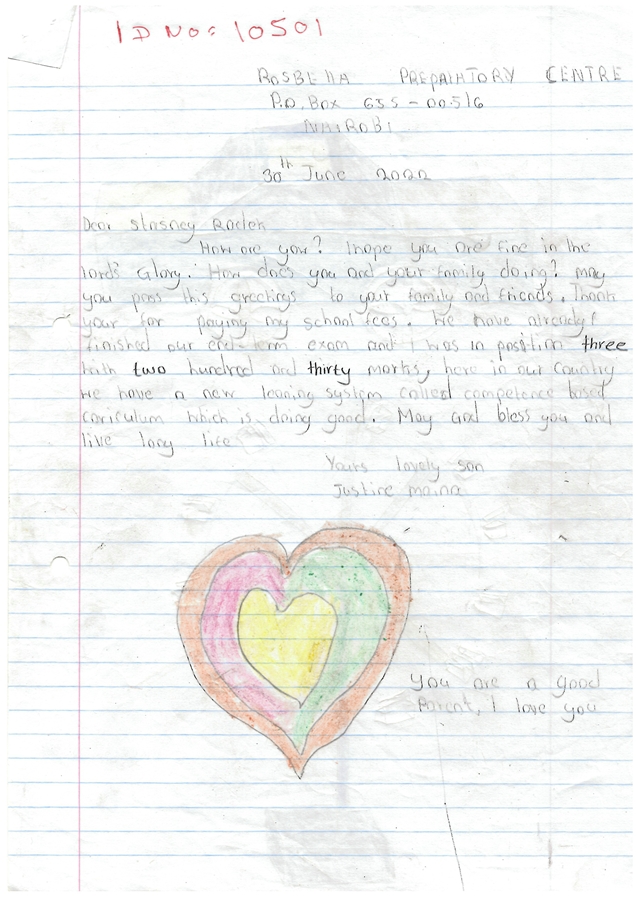 ID NO: 10501
ROSBELLA PREPARATORY CENTRE
P.O. Box 655 - 00516
NAIROBI
30th June 2022
Dear
How are you? I hope you are fine in the
lords Glory. How does you and your family doing? may
you pass this greetings to your family and friends. Thank
your for paying my school fees. We have already
finished our term exam and I was in position three
with two hundred and thirty marks, here in our country
we have a new leaning system called competence based
curiculum which is doing good. May god bless you and
live long life
Yours lovely son
Justine maina
You are a good
Parent, I love you